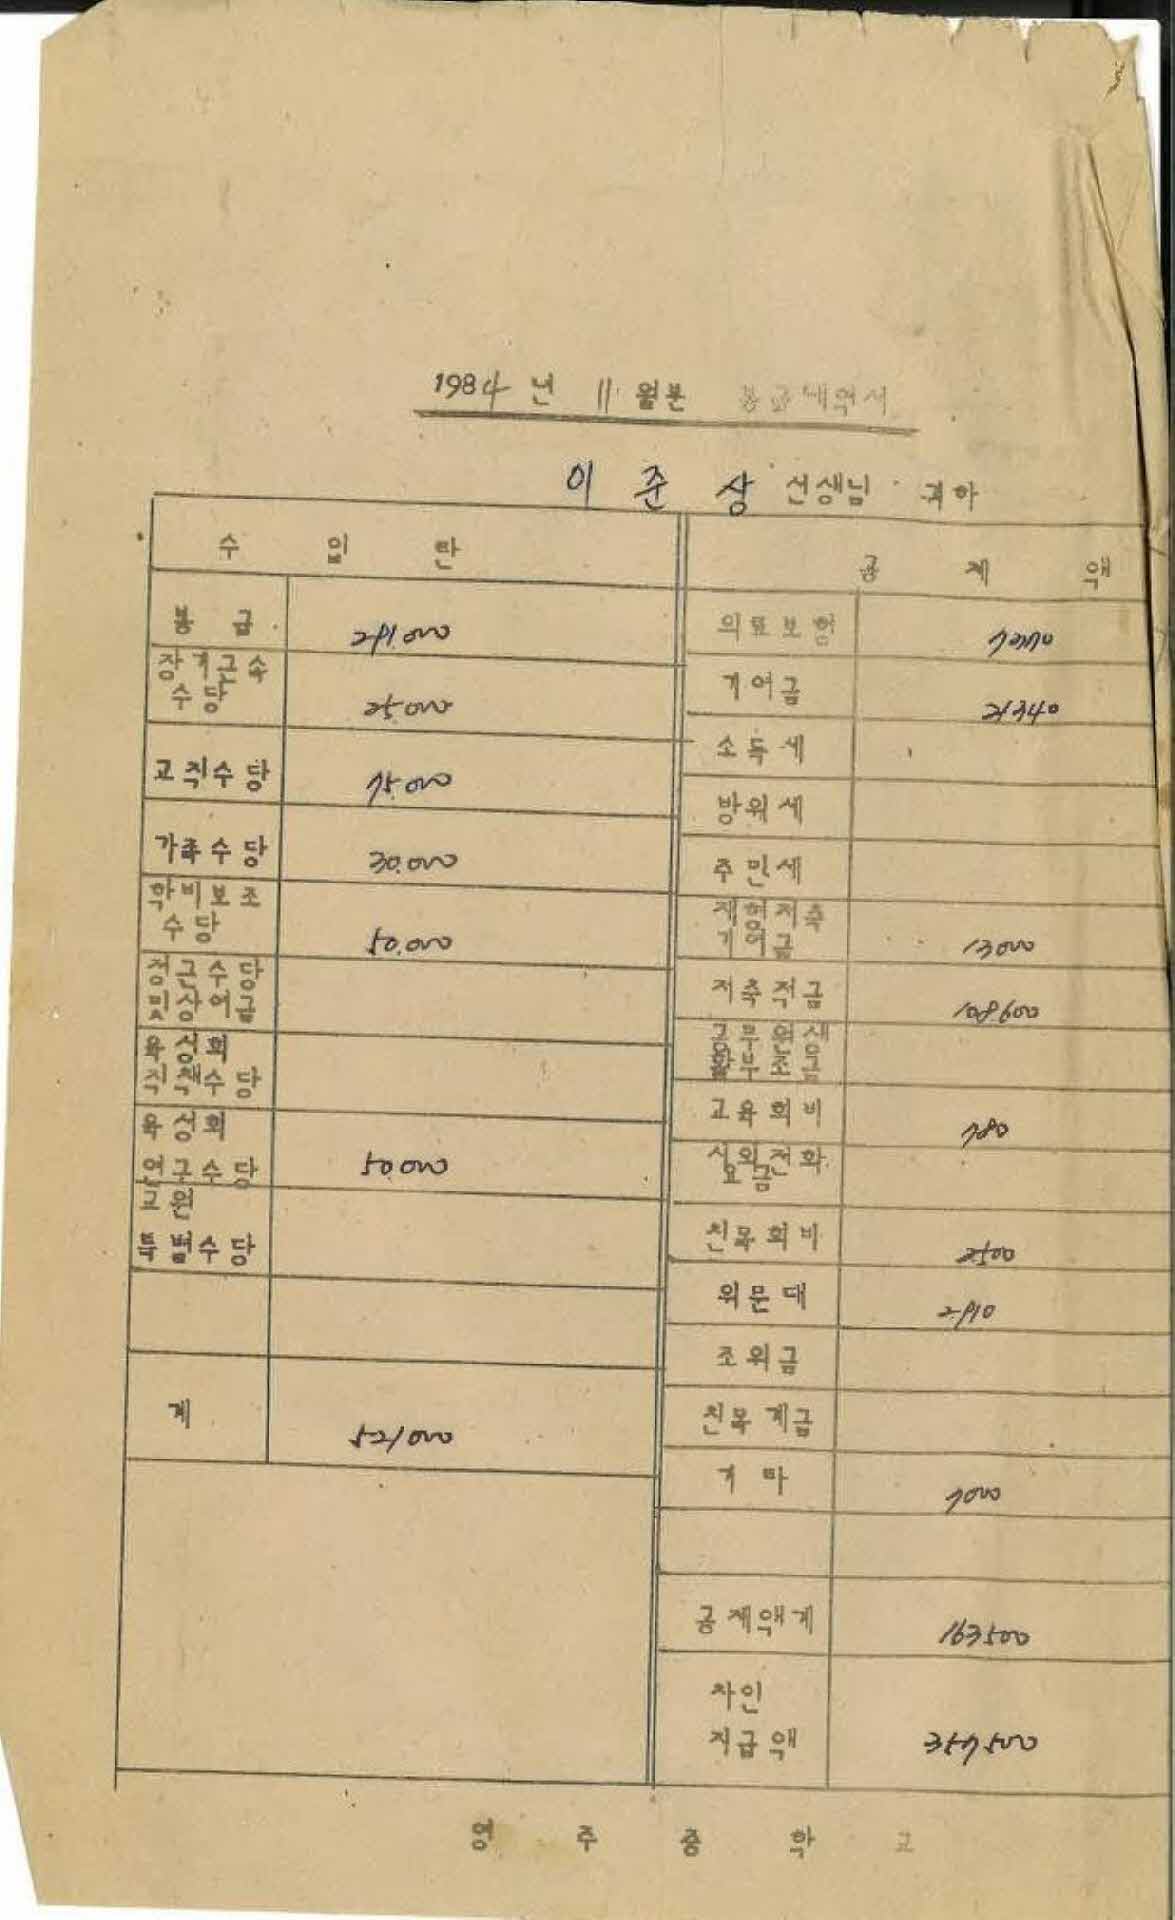 1984 년 11 월분 봉급내역서
이 준 상 선생님 귀하
수 입 란
봉 급 291.000
장기근속
수당 25.000
교직수당 75.000
가족수당 30.000
학비보조
수당 50.000
정근수당
및상여금
육성회
직책수당
육성회
연구수당 50.000
교원
특별수당
계 521000
공 제 액
의료보험 7370
기여금 21340
소득세
방위세
주민세
재형저축
기여금 13000
저축적금 108600
공무원생
활부조금
교육회비 780
시외전화
요금
친목회비 2500
위문대 2910
조위금
친목계금
기타 7000
공제액계 163500
차인
지급액 357500
영 주 중 학 교